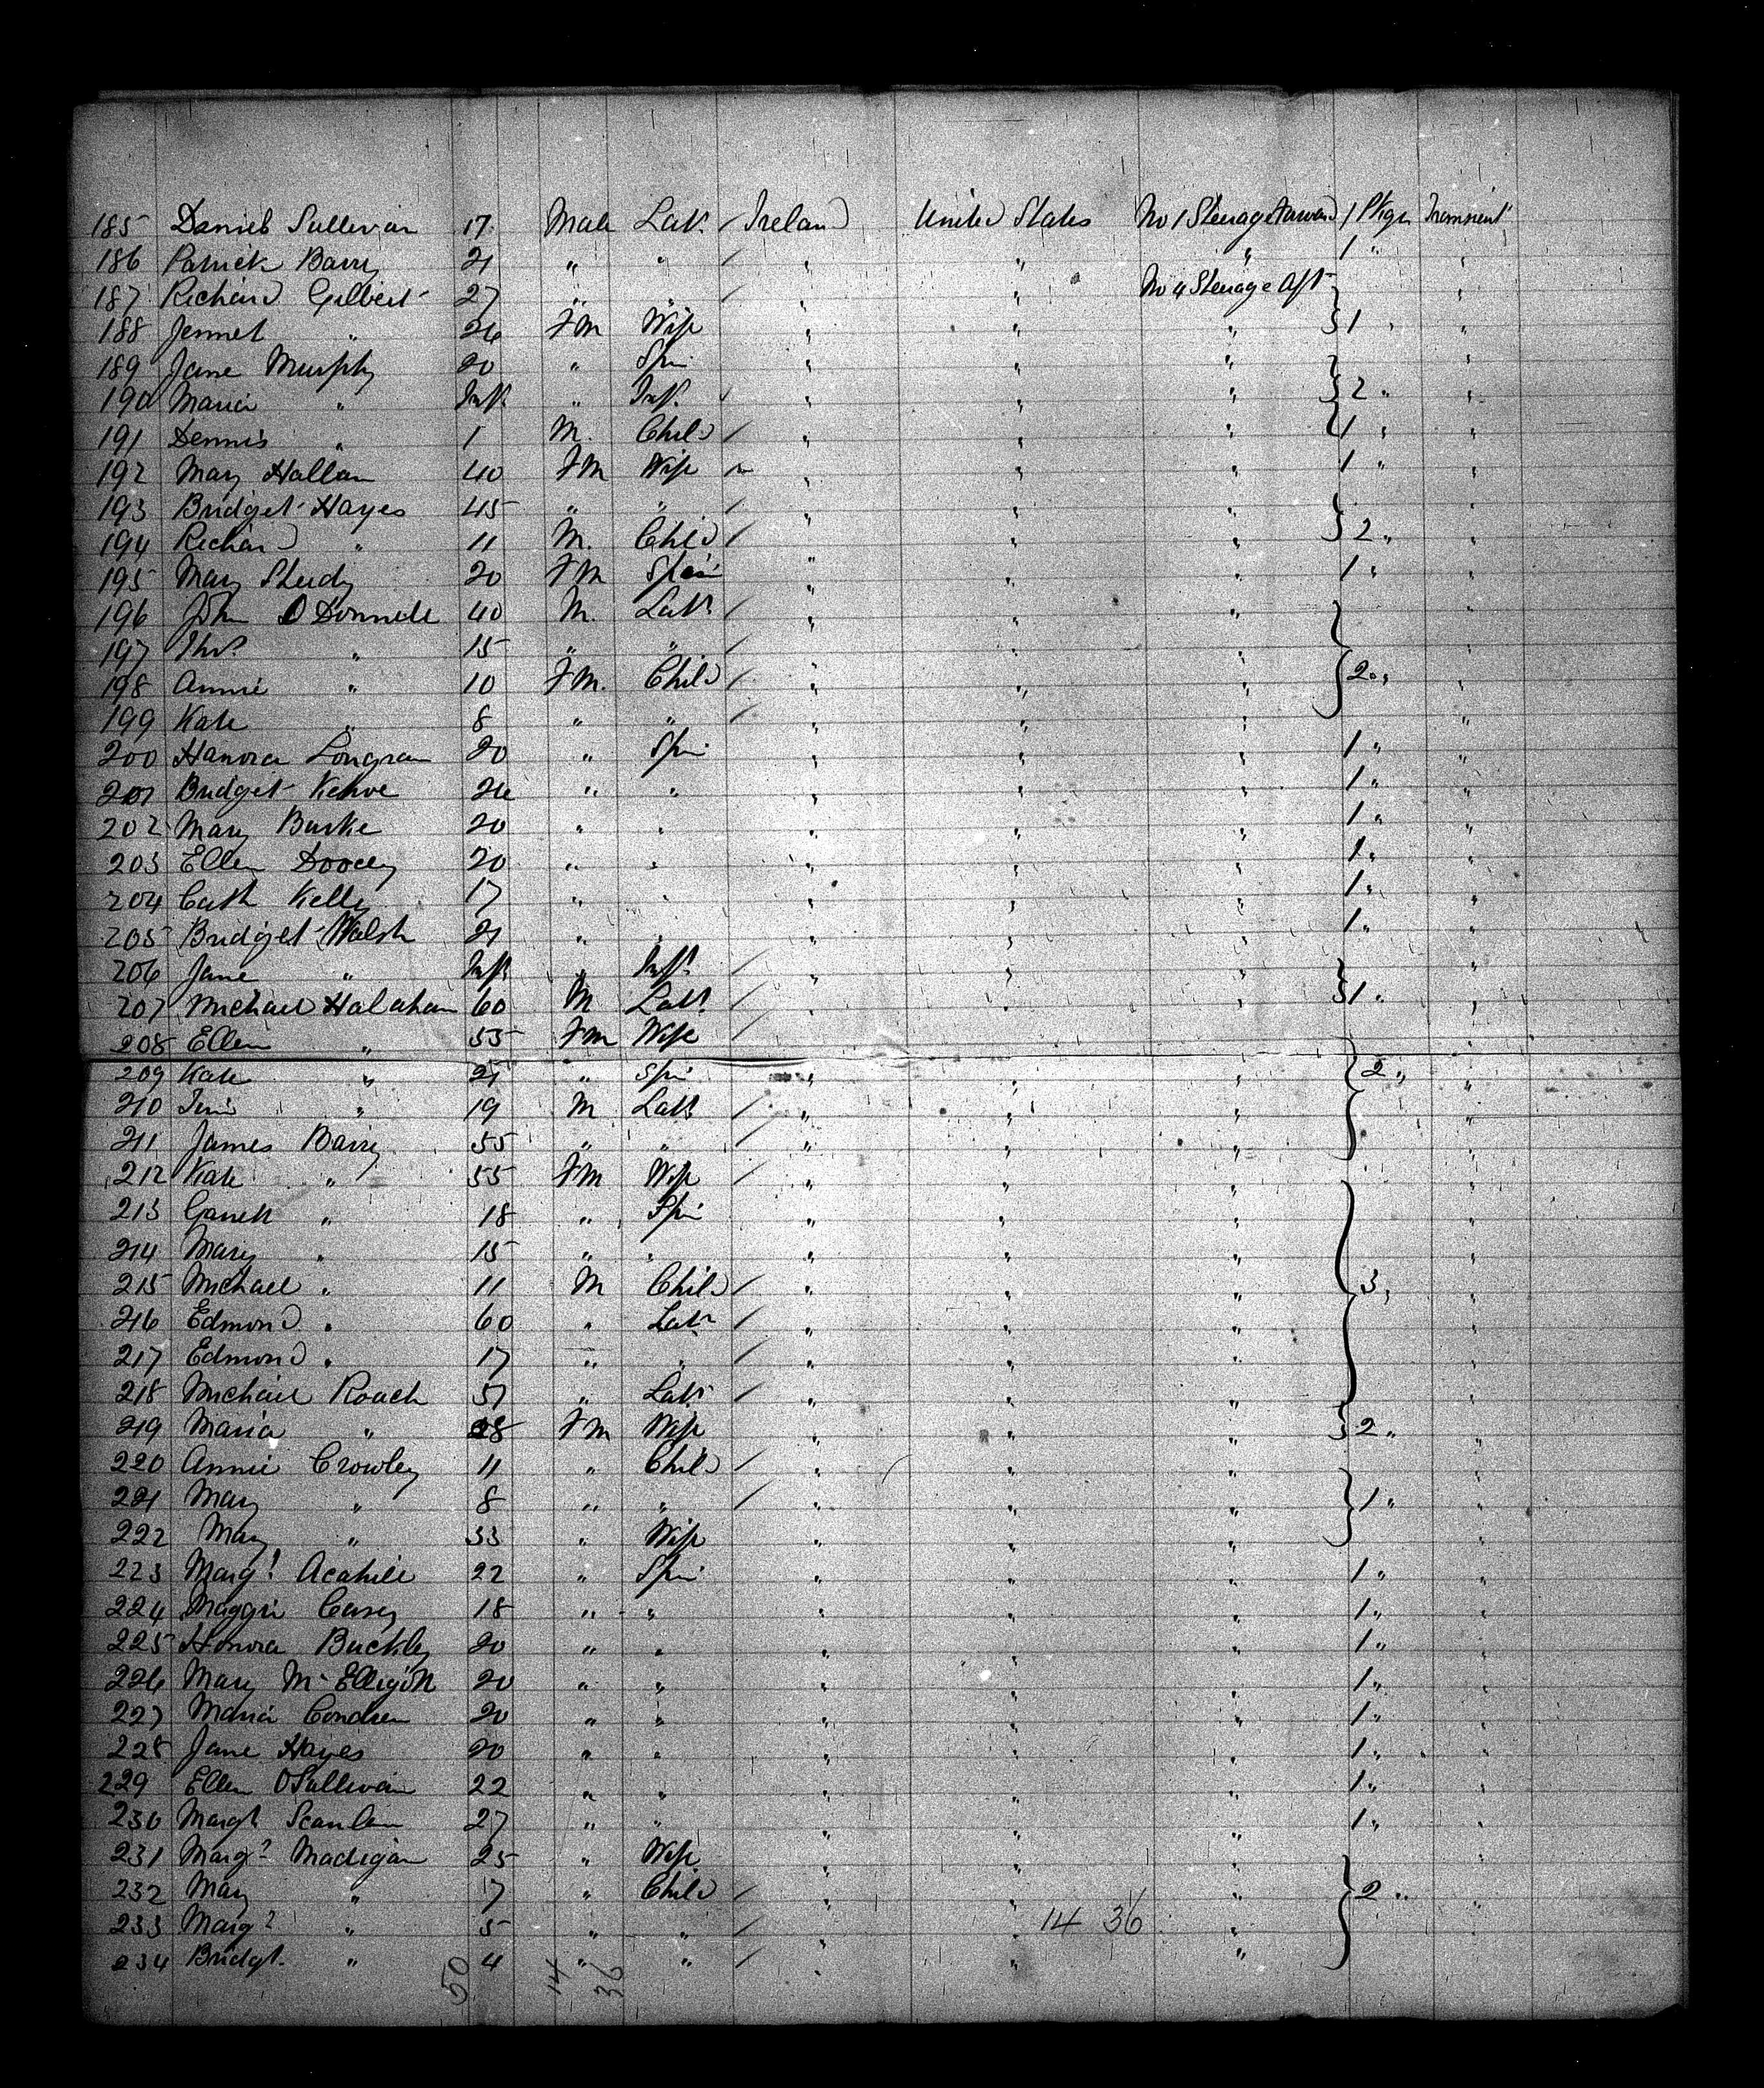 185 Daniel Sullivan 17 Male Labr / Ireland United States No 1 Steerage Forward 1 Pkge Transient
186 Patrick Barry 21 " " / " " 1 " "
187 Richard Gilbert 27 " " / " No 4 Steerage Aft "
188 Jennet " 26 FM Wife " " " } 1 " "
189 Jane Murphy 20 " Spin " " " "
190 Maria " Inft " Inft / " " " } 2 " "
191 Dennis " 1 M. Child / " " " 1 " "
192 Mary Hallan 40 FM Wife " " " 1 " "
193 Bridget Hayes 45 " " / " " " "
194 Richard " 11 M. Child / " " " } 2 " "
195 Mary 20 FM Spin " " " 1 " "
196 John O Donnell 40 M. Labr / " " " "
197 Thos " 15 " " / " " " "
198 Annie " 10 FM. Child / " " " } 2 " "
199 Kate " 8 " " / " " " "
200 Hanora 20 " Spin " " " 1 " "
201 Bridget Kehoe 26 " " " " " 1 " "
202 Mary Burke 20 " " " " " 1 " "
203 Ellen Doocey 20 " " " " " 1 " "
204 Cath Kelly 17 " " " " " 1 " "
205 Bridget Walsh 21 " " " " " 1 " "
206 Jane " Inft " Inft / " " " "
207 Michael Halahan 60 M Labr / " " " } 1 " "
208 Ellen " 55 FM Wife / " " " "
209 Kate " 21 " Spin " " " } 2 " "
210 " 19 M Labr / " " " "
211 James Barry 55 " " / " " " "
212 Kate " 55 FM Wife / " " " "
213 Garrett " 18 " Spin " " " "
214 Mary " 15 " " " " " "
215 Michael " 11 M Child / " " " } 3 " "
216 Edmond " 60 " Labr / " " " "
217 Edmond " 17 " " / " " " "
218 Michael Roach 51 " Labr / " " " "
219 Maria " 28 FM Wife " " " } 2 " "
220 Annie Crowley 11 " Child / " " " "
221 Mary " 8 " " / " " " } 1 " "
222 Mary " 33 " Wife " " " "
223 Margt 22 " Spin " " " 1 " "
224 Maggie Casey 18 " " " " " 1 " "
225 Honora Buckley 20 " " " " " 1 " "
226 Mary McElligott 20 " " " " " 1 " "
227 Maria Condren 20 " " " " " 1 " "
228 Jane Hayes 20 " " " " " 1 " "
229 Ellen OSullivan 22 " " " " " 1 " "
230 Margt Scanlan 27 " " " " " 1 " "
231 Margt Madigan 25 " Wife " " " "
232 Mary " 7 " Child / " " " } 2 " "
233 Margt " 5 " " / " 14 36 " "
234 Bridgt " 4 " " / " " "
50 14 36